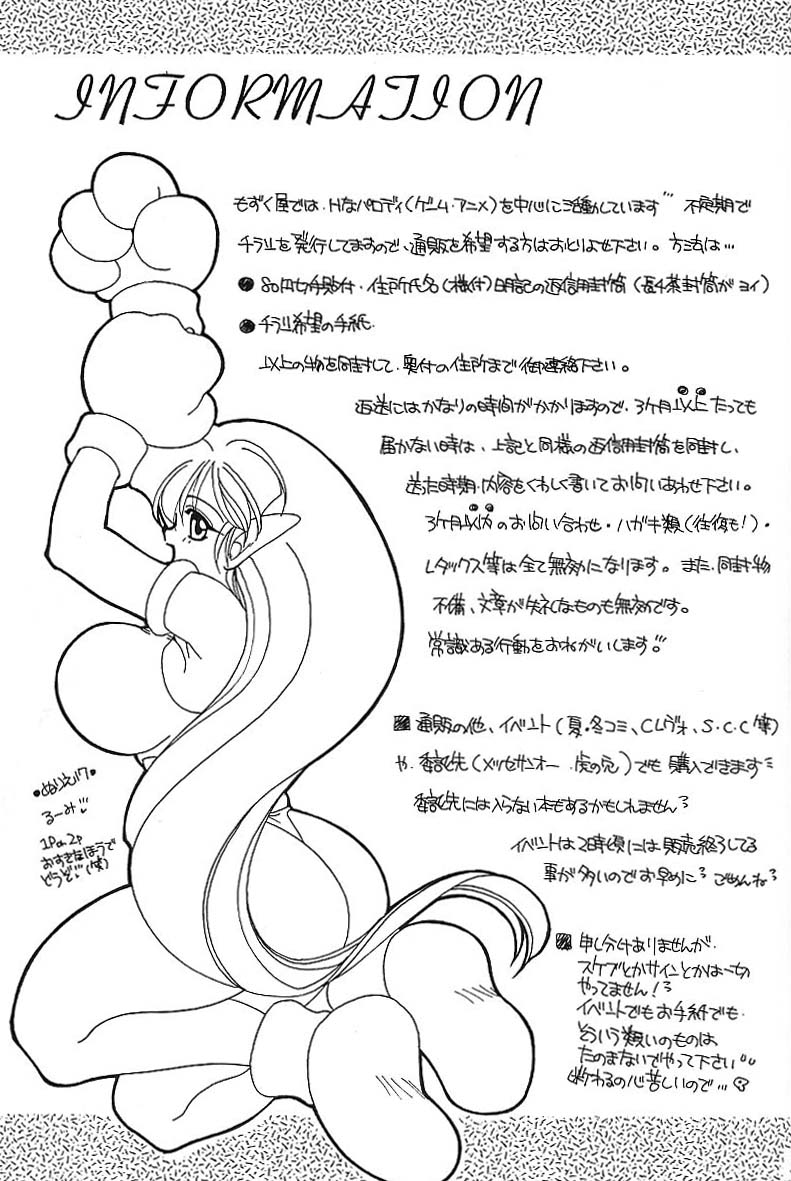 INFORMATION
もずく屋では、Hなパロディ(ゲーム・アニメ)を中心に活動しています 不定期で
チラシを発行してますので、通販を希望する方はおとりよせ下さい。方法は…
●80円切手貼付・住所氏名(様付)明記の返信用封筒(長4茶封筒がヨイ)
●チラシ希望の手紙.
以上の物を同封して、奥付の住所まで御連絡下さい。
返送にはかなりの時間がかかりますので、3ケ月以上たっても
届かない時は、上記と同様の返信用封筒を同封し、
送った時期・内容をくわしく書いてお問いあわせ下さい。
3ケ月以内のお問い合わせ・ハガキ類(往復も!)・
レタックス等は全て無効になります。また、同封物
不備、文章が失礼なものも無効です。
常識ある行動をおねがいします
▨通販の他、イベント(夏・冬コミ、Cレヴォ、S.C.C等)
や、委託先(メッセサンオー、虎の穴)でも購入できます
委託先には入らない本もあるかもしれません
イベントは2時頃には販売終了してる
事が多いのでお早めに ごめんね
▨申し分けありませんが、
スケブとかサインとかは一切
やってません!
イベントでもお手紙でも、
そういう類いのものは
たのまないでやって下さい
断わるの心苦しいので…
•ぬりえ♡•
るーみぃ
1Por2P
おすきなほうで
どうぞ(笑)